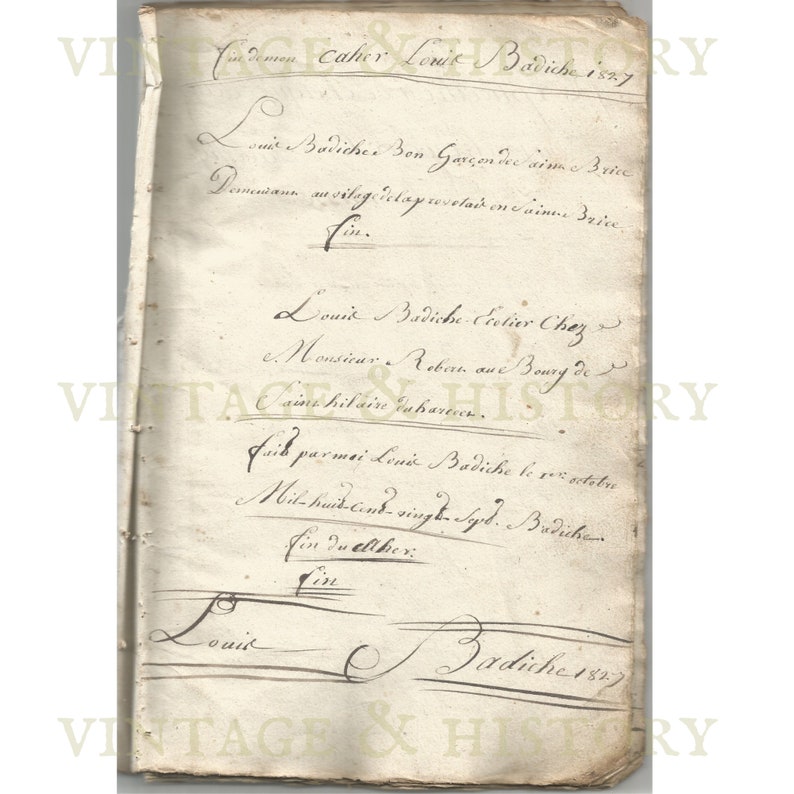 VINTAGE & HISTORY
fin de mon Caher Louis Badiche 1827
Louis Badiche Bon Garçon de Saint Brice
Demeurant au vilage de la provotais en Saint Brice.
fin.
Louis Badiche Ecolier Chez
Monsieur Robert au Bourg de
Saint hilaire du harcoet.
VINTAGE & HISTORY
fait par moi Louis Badiche le 1er octobre
Mil-huit-cent-vingt-Sept. Badiche.
fin du Caher.
fin
Louis Badiche 1827
VINTAGE & HISTORY